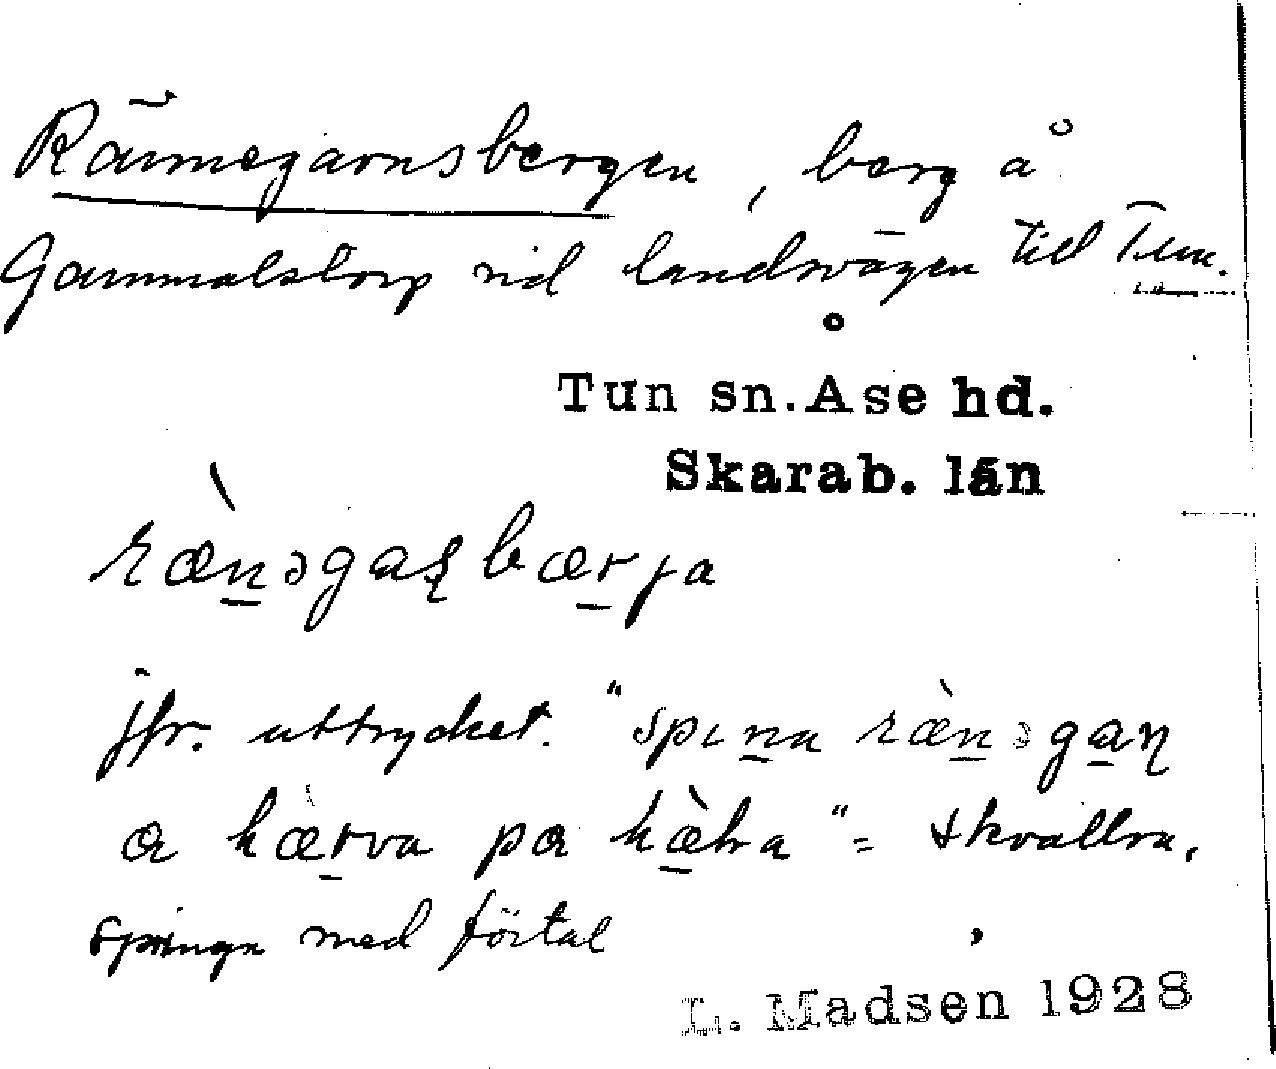 Rännegarnsbergen, berg å
Gammalstorp vid landsvägen till Tun.
Tun sn. Åse hd.
Skarab. län
rænəgaʂbærja
jfr. uttrycket "spɩna rænəgaɳ
a hærva pa hæla" = skvallra,
springa med förtal
L. Madsen 1928